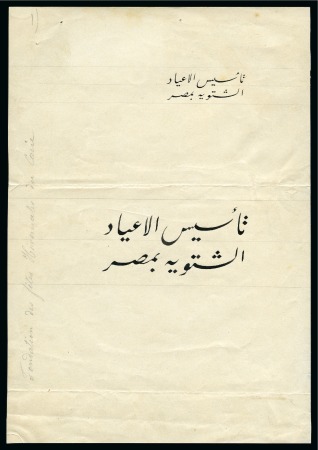 تأسيس الاعياد
الشتويه بمصر
تأسيس الاعياد
الشتويه بمصر
Fondation des fêtes du Caire